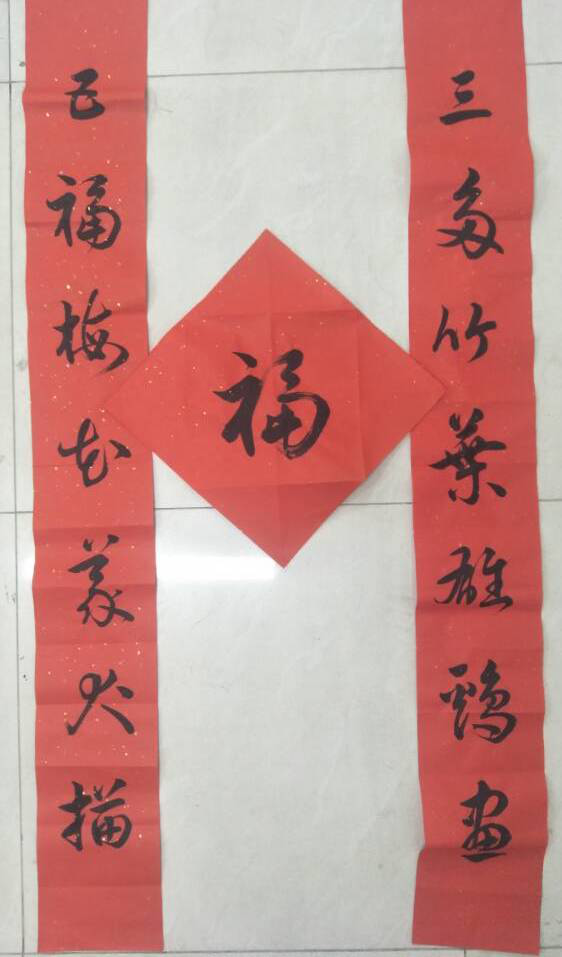 三多竹葉雄鷄畫
福
五福梅花義犬描